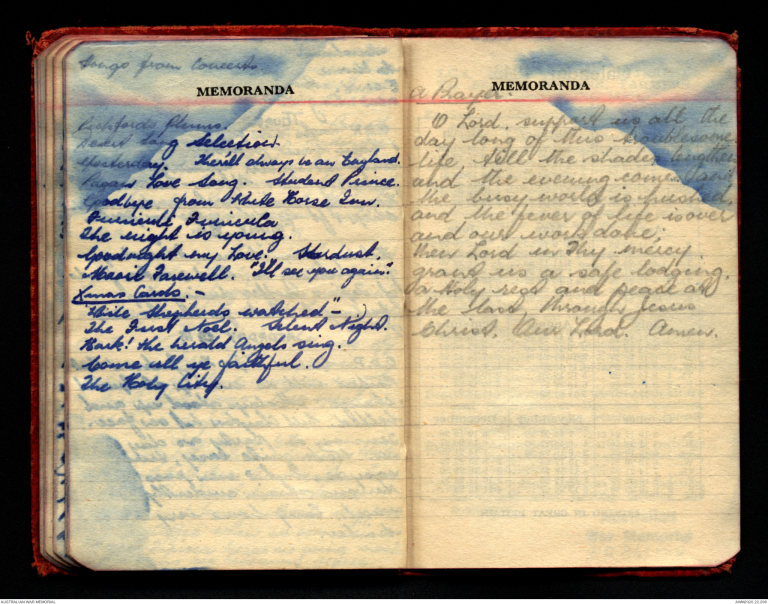 Songs from Concerts.
MEMORANDA
Desert Song Selection
Yesterday. There'll always is an England.
Pagan Love Song. Student Prince.
Goodbye from White Horse Inn.
Funiculi Funicula
The night is young.
Goodnight my Love. Stardust.
Maori Farewell. "I'll see you again."
Xmas Carols. -
"While Shepherds watched" -
The First Noel. Silent Night.
Hark! the herald Angels sing.
Come all ye faithful.
The Holy City.
MEMORANDA
A Prayer.
O Lord, support us all the
day long of this troublesome
life, till the shades lengthen
and the evening comes, and
the busy world is hushed,
and the fever of life is over
and our work done;
then Lord in Thy mercy
grant us a safe lodging,
a Holy rest and peace at
the last, through Jesus
Christ, Our Lord. Amen.
AUSTRALIAN WAR MEMORIAL